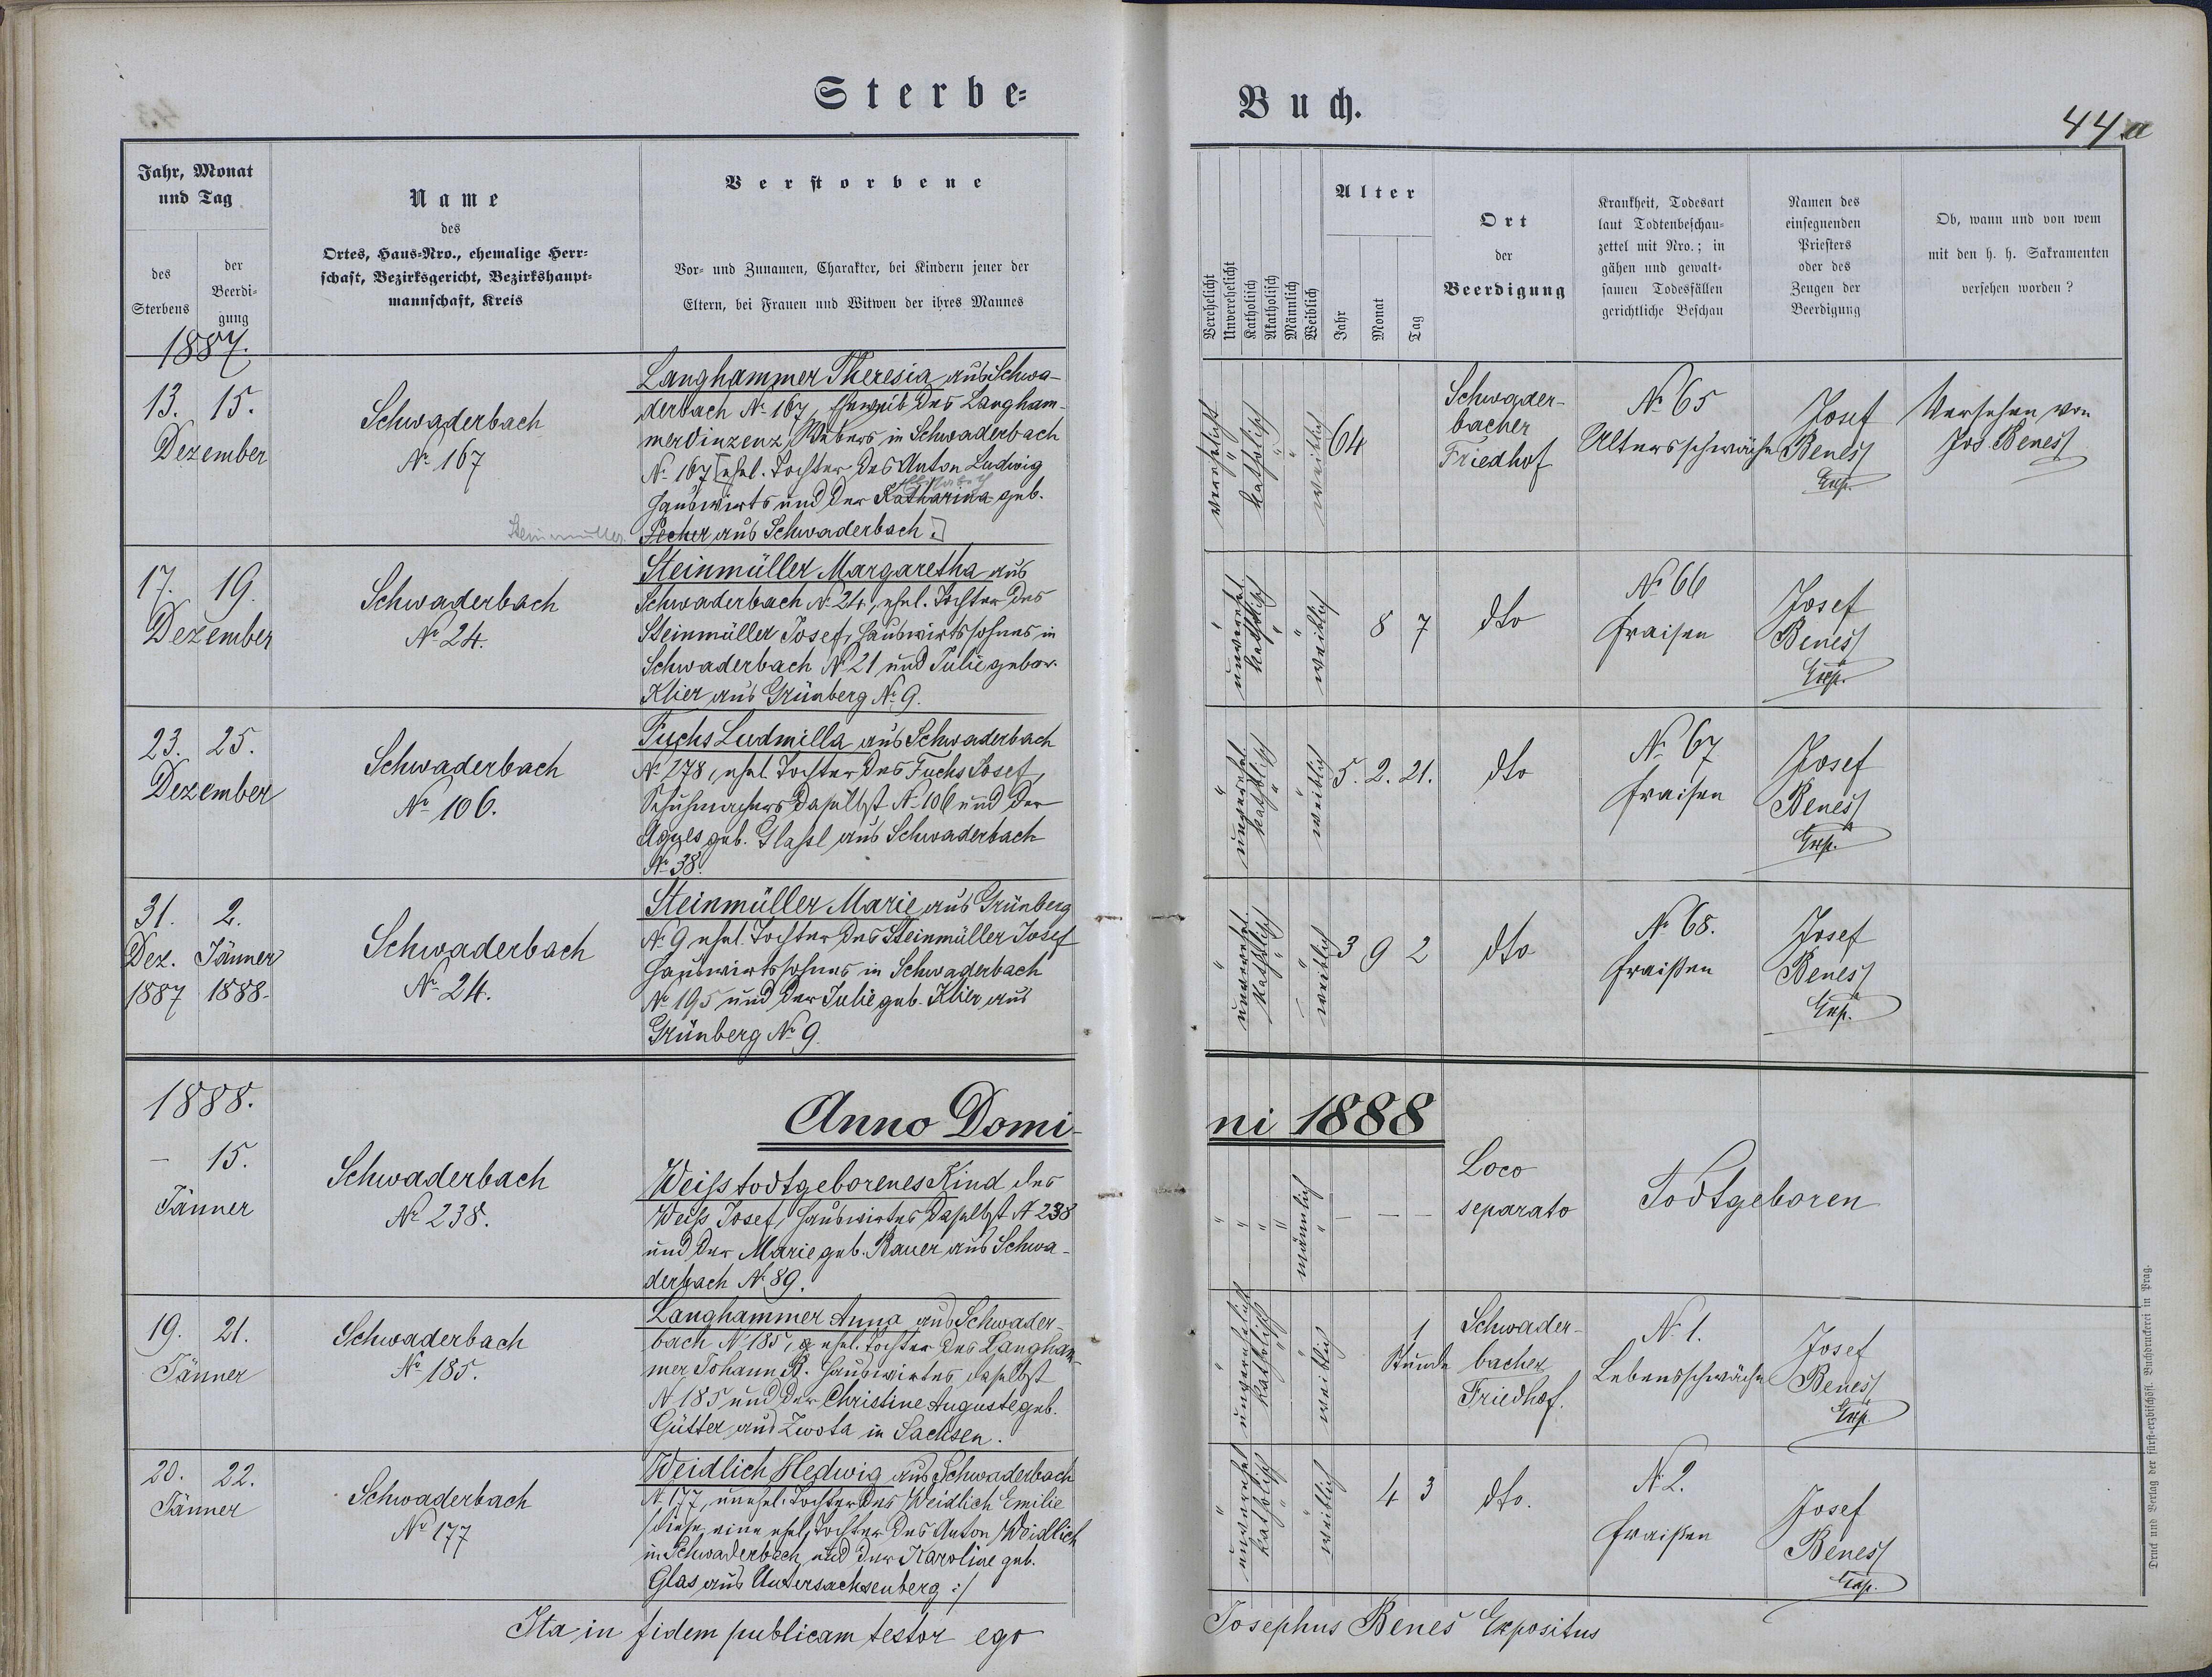 Sterbe-
Buch.
44.a
Jahr, Monat
und Tag
des
Sterbens
der
Beerdi-
gung
Name
des
Ortes, Haus-Nro., ehemalige Herr-
schaft, Bezirksgericht, Bezirkshaupt-
mannschaft, Kreis
Verstorbene
Vor- und Zunamen, Charakter, bei Kindern jener der
Eltern, bei Frauen und Witwen der ihres Mannes
Verehelicht
Unverehelicht
Katholisch
Akatholisch
Männlich
Weiblich
Alter
Jahr
Monat
Tag
Ort
der
Beerdigung
Krankheit, Todesart
laut Todtenbeschau-
zettel mit Nro.; in
gähen und gewalt-
samen Todesfällen
gerichtliche Beschau
Namen des
einsegnenden
Priesters
oder des
Zeugen der
Beerdigung
Ob, wann und von wem
mit den h. h. Sakramenten
versehen worden?
1887.
13. 15.
Dezember
Schwaderbach
No 167
Langhammer Theresia aus Schwa-
derbach No 167, Eheweib des Langham-
mer Vinzenz, Webers in Schwaderbach
No 167 [ehel. Tochter des Anton Ludwig
Hauswirts und der Katharina geb.
Elisabeth
Steinmüller
Pecher aus Schwaderbach.]
verehelicht
" katholisch
" "
weiblich
64
Schwader-
bacher
Friedhof
No 65
Altersschwäche
Josef
Beneš
Exp.
Versehen von
Jos. Beneš
17. 19.
Dezember
Schwaderbach
No 24.
Steinmüller Margaretha aus
Schwaderbach No 24, ehel. Tochter des
Steinmüller Josef, Hauswirtssohnes in
Schwaderbach No 21 und Julie gebor.
Klier aus Grünberg No 9.
" unverehel.
katholisch
" "
weiblich
8 7
dto
No 66
Fraisen
Josef
Beneš
Exp.
23. 25.
Dezember
Schwaderbach
No 106.
Fuchs Ludmilla aus Schwaderbach
No 278, ehel. Tochter des Fuchs Josef,
Schuhmachers daselbst No 106 und der
Agnes geb. Glassl aus Schwaderbach
No 38.
" unverehel.
katholisch
" "
weiblich
5. 2. 21.
dto
No 67
Fraisen
Josef
Beneš
Exp.
31. 2.
Dez. Jänner
1887 1888.
Schwaderbach
No 24.
Steinmüller Marie aus Grünberg
No 9 ehel. Tochter des Steinmüller Josef
Hauswirtssohnes in Schwaderbach
No 195 und der Julie geb. Klier aus
Grünberg No 9.
" unverehel.
katholisch
" "
weiblich
3 9 2
dto
No 68.
Fraißen
Josef
Beneš
Exp.
1888.
Anno Domi-
ni 1888
– 15.
Jänner
Schwaderbach
No 238.
Weiss todtgeborenes Kind des
Weiss Josef, Hauswirtes daselbst No 238
und der Marie geb. Bauer aus Schwa-
derbach No 89.
" " " "
männlich
"
– – –
Loco
separato
Todtgeboren
19. 21.
Jänner
Schwaderbach
No 185.
Langhammer Anna aus Schwader-
bach No 185, ehel. Tochter des Langham-
mer Johann B. Hauswirtes daselbst
No 185 und der Christine Auguste geb.
Gütter aus Zwota in Sachsen.
" unverehelicht
katholisch
" "
weiblich
1
Stunde
Schwader-
bacher
Friedhof.
No 1.
Lebensschwäche
Josef
Beneš
Exp.
20. 22.
Jänner
Schwaderbach
No 177
Weidlich Hedwig aus Schwaderbach
No 177, unehel. Tochter des Weidlich Emilie
/diese eine ehel. Tochter des Anton Weidlich
in Schwaderbach und der Karoline geb.
Glas aus Untersachsenberg :/
" unverehel
katholisch
" "
weiblich
4 3
dto.
No 2.
Fraißen
Josef
Beneš
Exp.
Ita in fidem publicam testor ego
Josephus Beneš Expositus
Druck und Verlag der fürst-erzbischöfl. Buchdruckerei in Prag.